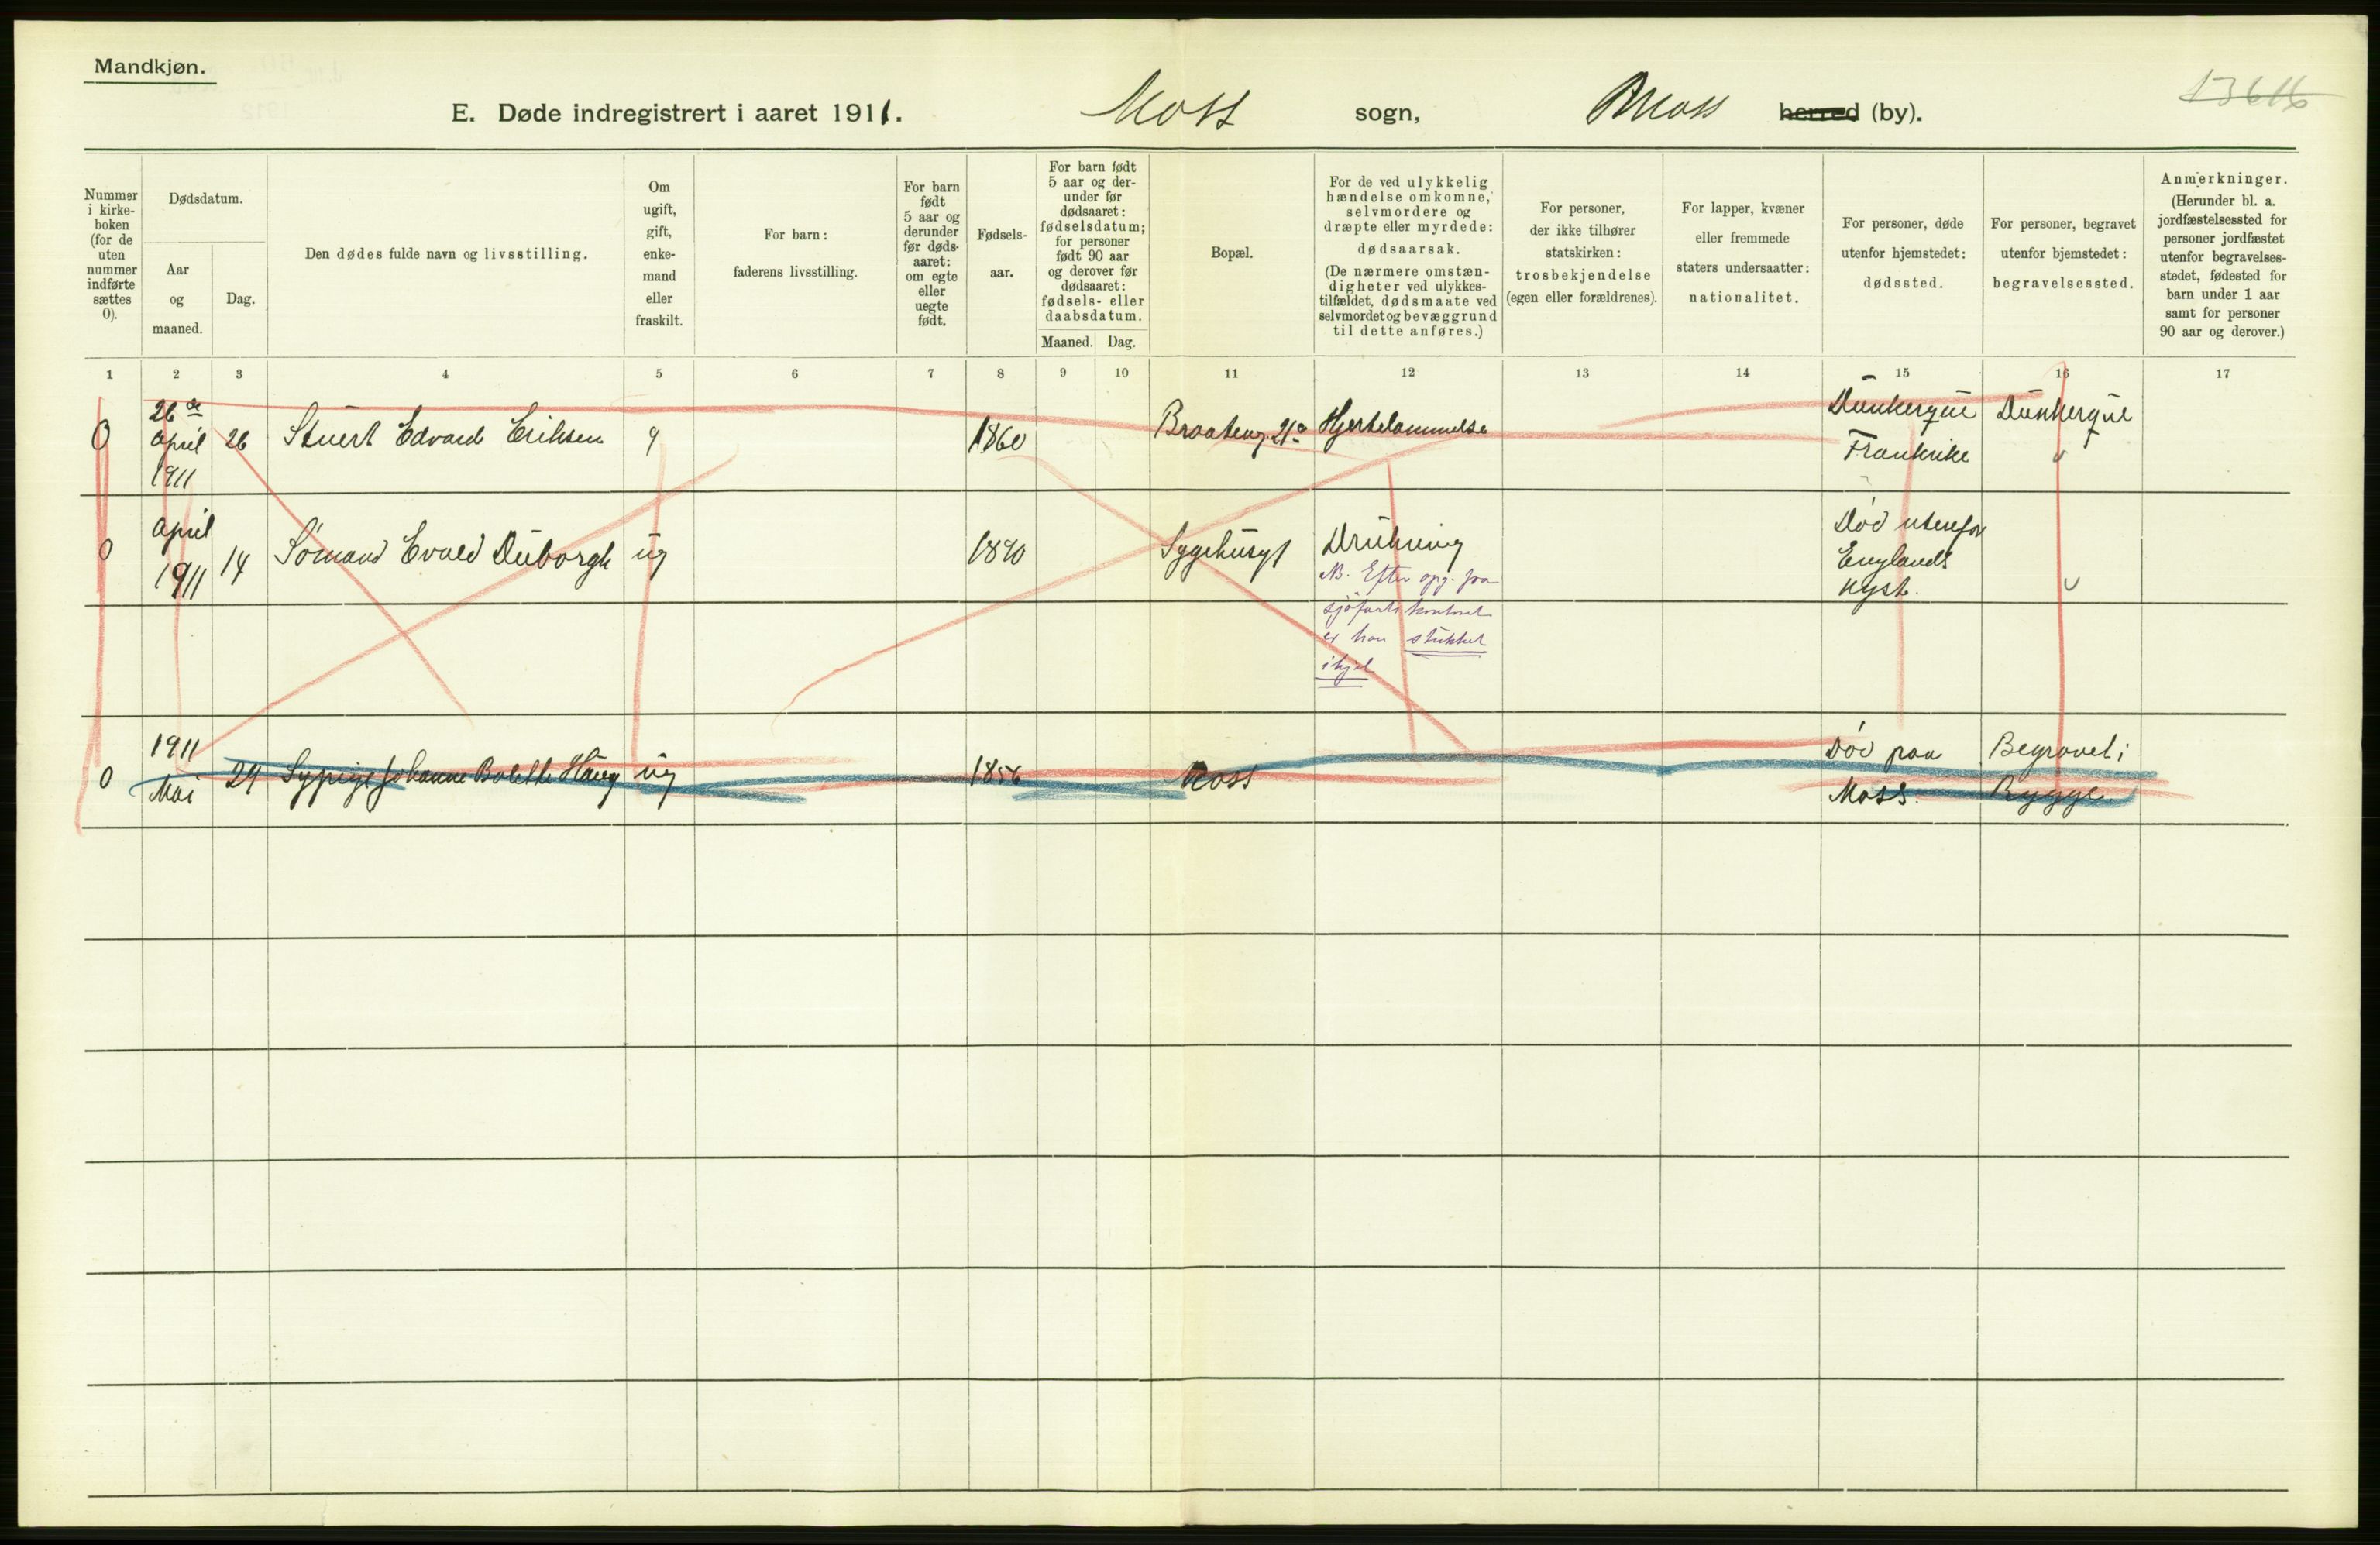 Mandkjøn.
E. Døde indregistrert i aaret 1911. Moss sogn, Moss herred (by).
13616
Nummer
i kirke-
boken
(for de
uten
nummer
indførte
sættes
0).
Dødsdatum.
Aar
og
maaned.
Dag.
Den dødes fulde navn og livsstilling.
Om
ugift,
gift,
enke-
mand
eller
fraskilt.
For barn:
faderens livsstilling.
For barn
født
5 aar og
derunder
før døds-
aaret:
om egte
eller
uegte
født.
Fødsels-
aar.
For barn født
5 aar og der-
under før
dødsaaret:
fødselsdatum;
for personer
født 90 aar
og derover før
dødsaaret:
fødsels- eller
daabsdatum.
Maaned. Dag.
Bopæl.
For de ved ulykkelig
hændelse omkomne,
selvmordere og
dræpte eller myrdede:
dødsaarsak.
(De nærmere omstæn-
digheter ved ulykkes-
tilfældet, dødsmaate ved
selvmordet og bevæggrund
til dette anføres.)
For personer,
der ikke tilhører
statskirken:
trosbekjendelse
(egen eller forældrenes).
For lapper, kvæner
eller fremmede
staters undersaatter:
nationalitet.
For personer, døde
utenfor hjemstedet:
dødssted.
For personer, begravet
utenfor hjemstedet:
begravelsessted.
Anmerkninger.
(Herunder bl. a.
jordfæstelsessted for
personer jordfæstet
utenfor begravelses-
stedet, fødested for
barn under 1 aar
samt for personer
90 aar og derover.)
1 2 3 4 5 6 7 8 9 10 11 12 13 14 15 16 17
0
26de
april
1911
26
Stuert Edvard Eriksen
g
1860
Braateng. 21a
Hjertelammelse
Dunkerque
Frankrike
Dunkerque
0
april
1911
14
Sømand Evald Duborgh
ug
1890
Sygehusgt
Drukning
NB. Efter opg. fra
sjøfartskontoret
er han stukket
ihjel
Død utenfor
Englands
kyst.
0
1911
Mai
29
Sypige Johanne Bolette Haug
ug
1856
Moss
Død paa
Moss.
Begravet i
Rygge.